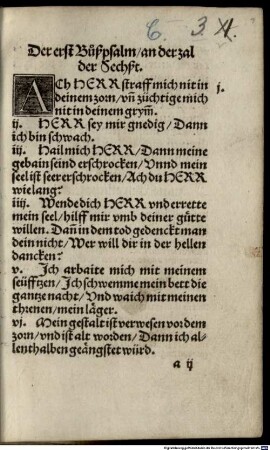 6. 3. XI.
Der erst Bůßpsalm/an der zal
der Sechßt.
ACh HERR straff mich nit in
deinem zorn/ vñ züchtige mich
nit in deinem grym̃.
j.
ij. HERR sey mir gnedig/ Dann
ich bin schwach.
iij. Hail mich HERR/ Dann meine
gebain seind erschrocken/ Vnnd mein
seel ist seer erschrocken/ Ach du HERR
wie lang?
iiij. Wende dich HERR vnd errette
mein seel/ hilff mir vmb deiner gütte
willen. Dañ in dem tod gedenckt man
dein nicht/ Wer will dir in der hellen
dancken?
v. Ich arbaite mich mit meinem
seüfftzen/ Ich schwemme mein bett die
gantze nacht/ Vnd waich mit meinen
threnen/ mein läger.
vj. Mein gestalt ist verwesen vor dem
zorn/ vnd ist alt worden/ Dann ich al-
lenthalben geängstet würd.
a ij